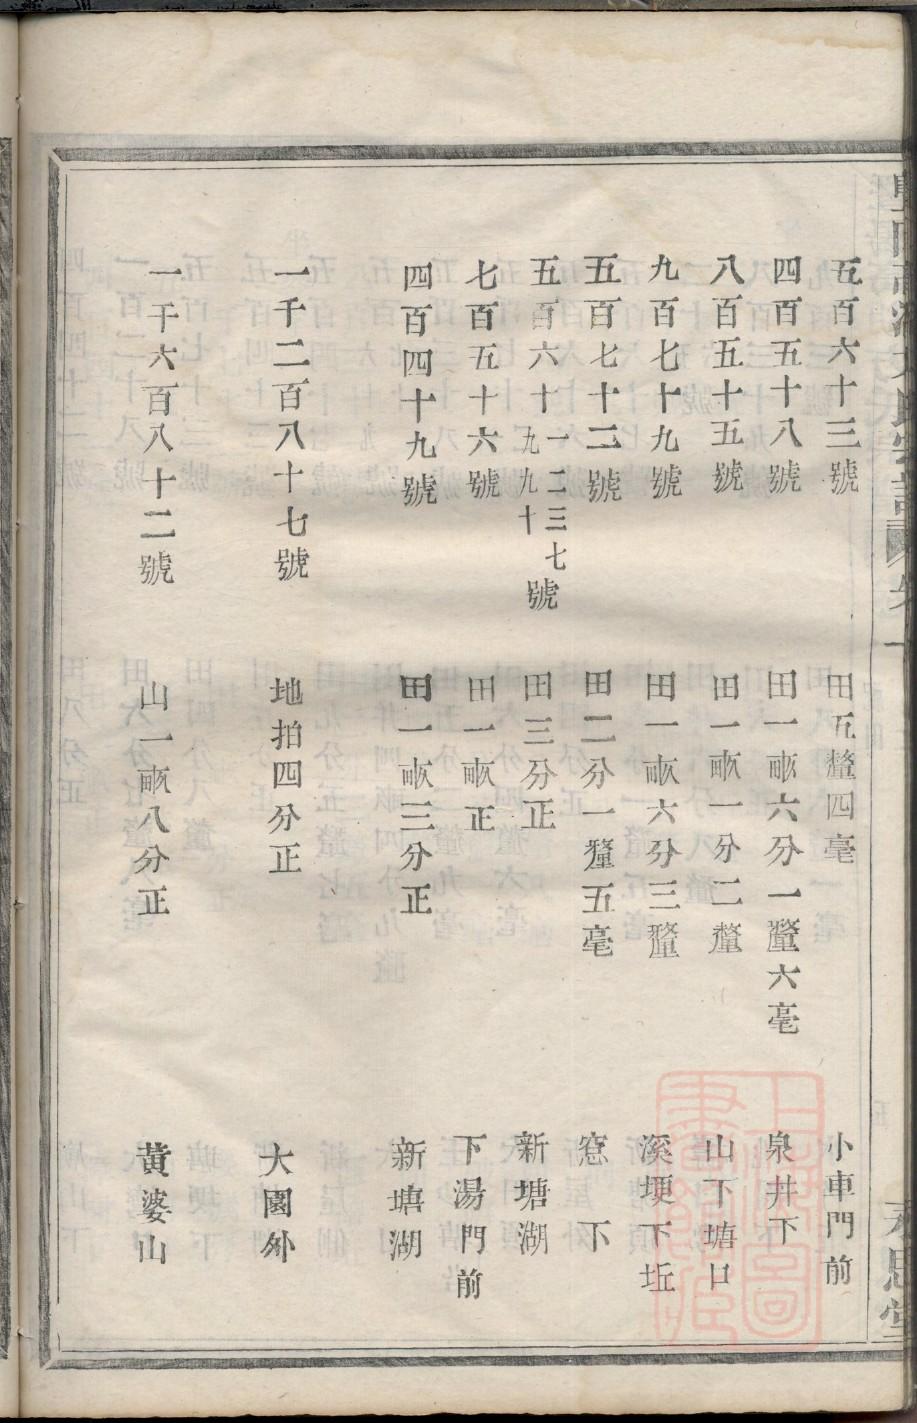 五百六十三號 田五釐四毫 小車門前
四百五十八號 田一畝六分一釐六毫 泉井下
八百五十五號 田一畝一分二釐 山下塘口
九百七十九號 田一畝六分三釐 溪埂下坵
五百七十二號 田二分一釐五毫 窓下
五百六十一二三七九九十號 田三分正 新塘湖
七百五十六號 田一畝正 下湯門前
四百四十九號 田一畝三分正 新塘湖
一千二百八十七號 地拍四分正 大園外
一千六百八十二號 山一畝八分正 黃婆山